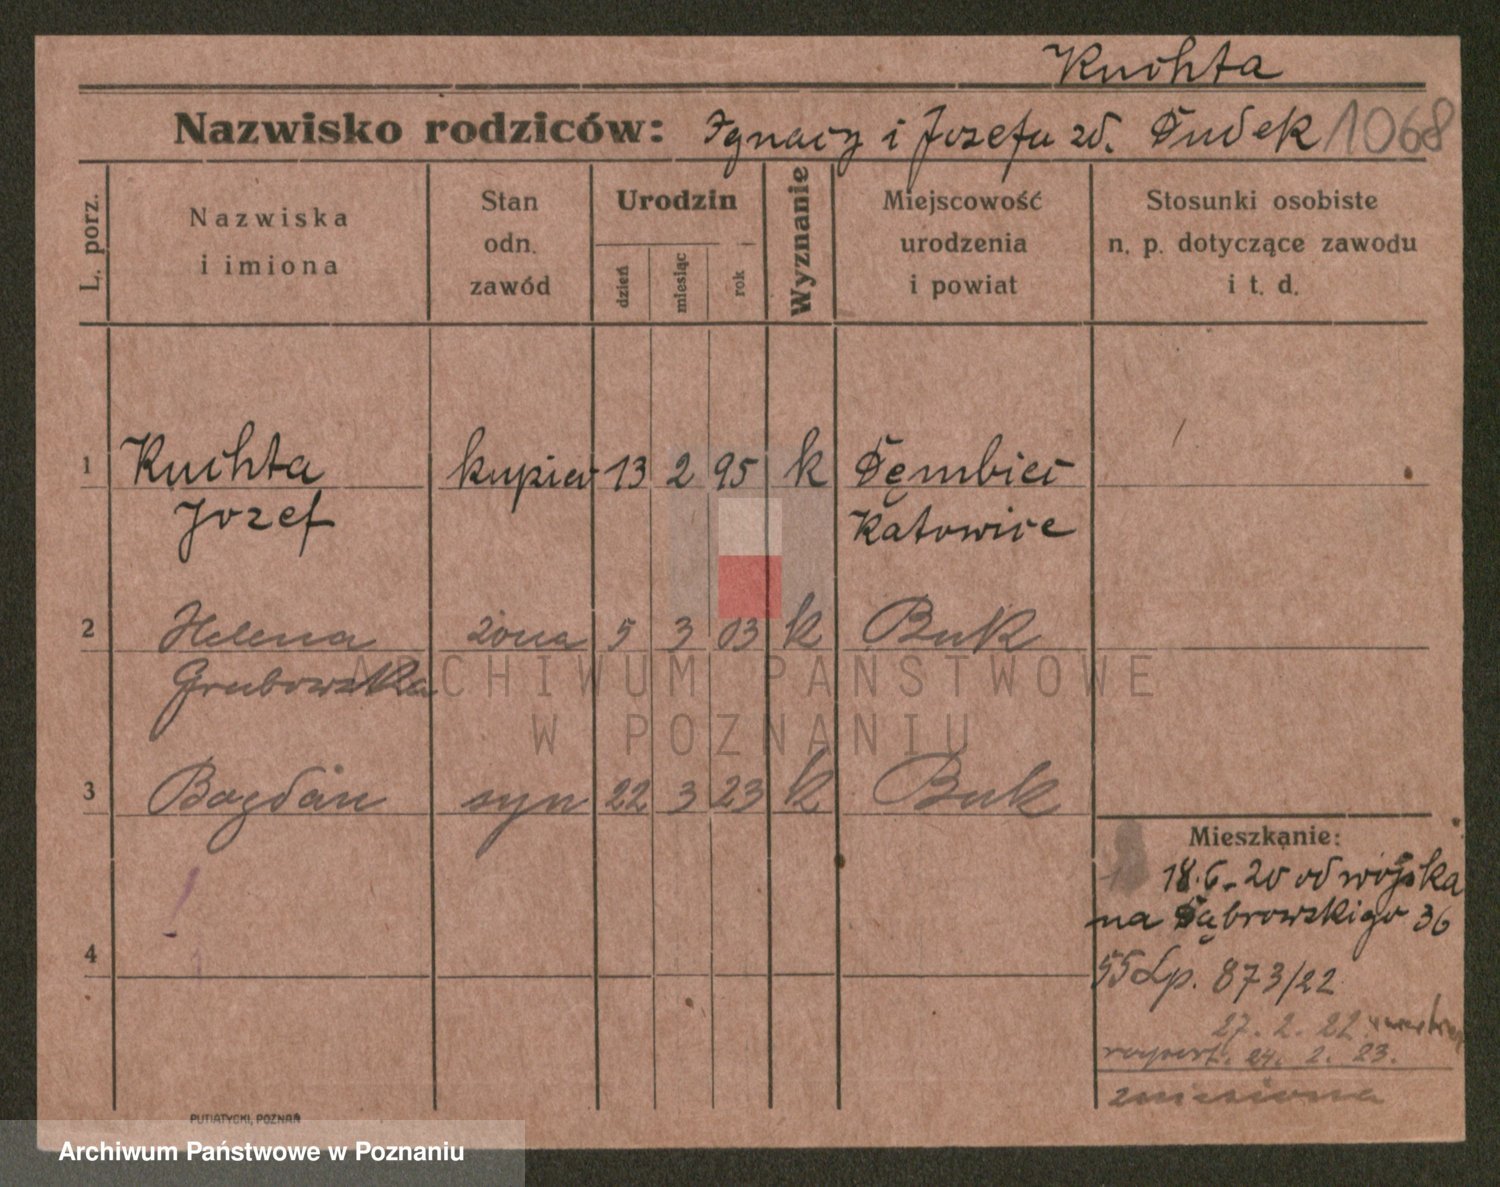 Kuchta
Nazwisko rodziców: Ignacy i Jozefa zd. Dudek 1068
L. porz.
Nazwiska
i imiona
Stan
odn.
zawód
Urodzin
dzień
miesiąc
rok
Wyznanie
Miejscowość
urodzenia
i powiat
Stosunki osobiste
n. p. dotyczące zawodu
i t. d.
1 Kuchta kupiec 13 2 95 k Dęmbiec
Jozef Katowice
2 Helena żona 5 3 03 k Buk
Grubowska
3 Bogdan syn 22 3 23 k Buk
4
Mieszkanie:
18.6.20 od wojska
na Dąbrowskigo 36
55 Lp. 873/22
27. 2. 22
raport. 24. 2. 23.
PUTIATYCKI, POZNAŃ
ARCHIWUM PAŃSTWOWE
W POZNANIU
Archiwum Państwowe w Poznaniu